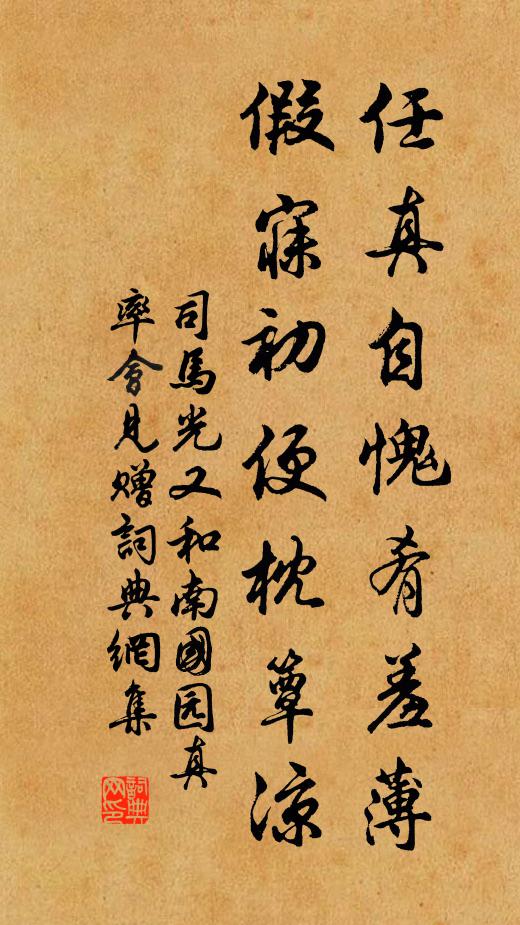 任真自愧肴羞薄
假寐初便枕簟凉
司馬光又和南國园真
率會見贈詞典網集
詞典网印